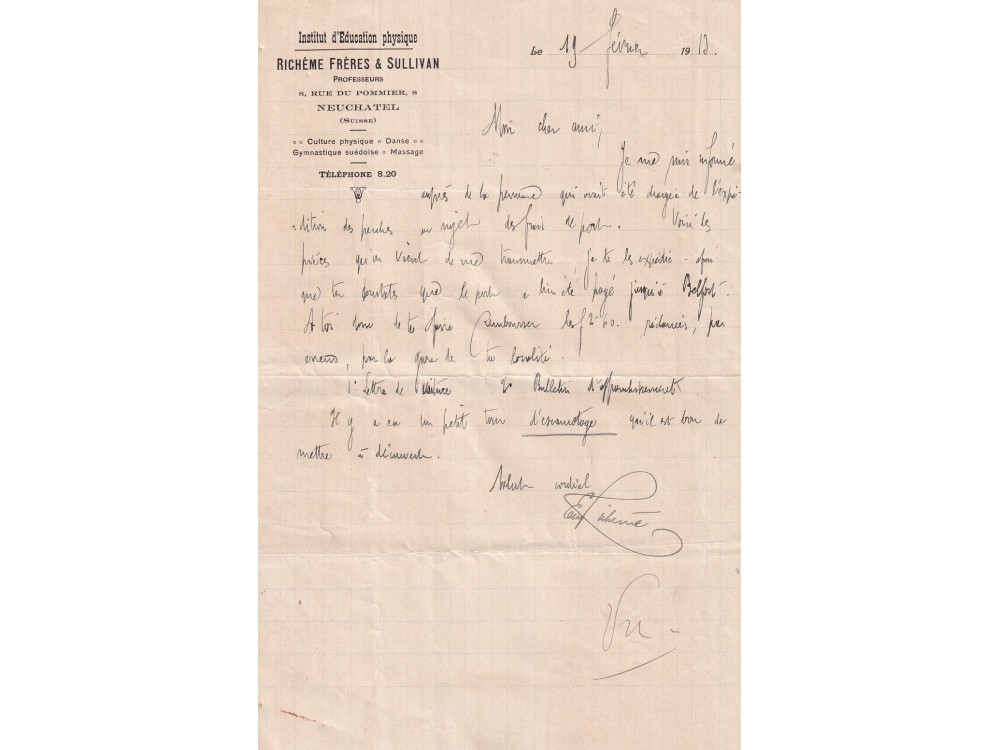 Institut d'Education physique
RICHÈME FRÈRES & SULLIVAN
PROFESSEURS
8, RUE DU POMMIER, 8
NEUCHATEL
(SUISSE)
Culture physique Danse
Gymnastique suédoise Massage
TÉLÉPHONE 8.20
Le 19 février 1913.
Mon cher ami,
Je me suis informé
auprès de la personne qui avait été chargée de l'expé-
-dition des perches au sujet des frais de port. Voici les
pièces qu'on vient de me transmettre. Je te les expédie afin
que tu constates que le port a bien été payé jusqu'à Belfort.
A toi donc de te faire rembourser les f 2-60. réclamés, par
erreur, par la gare de ta localité.
1° Lettre de voiture 2° Bulletin d'affranchissement
Il y a eu un petit tour d'escamotage qu'il est bon de
mettre à découvert.
Salut cordial
Richème
Vu -